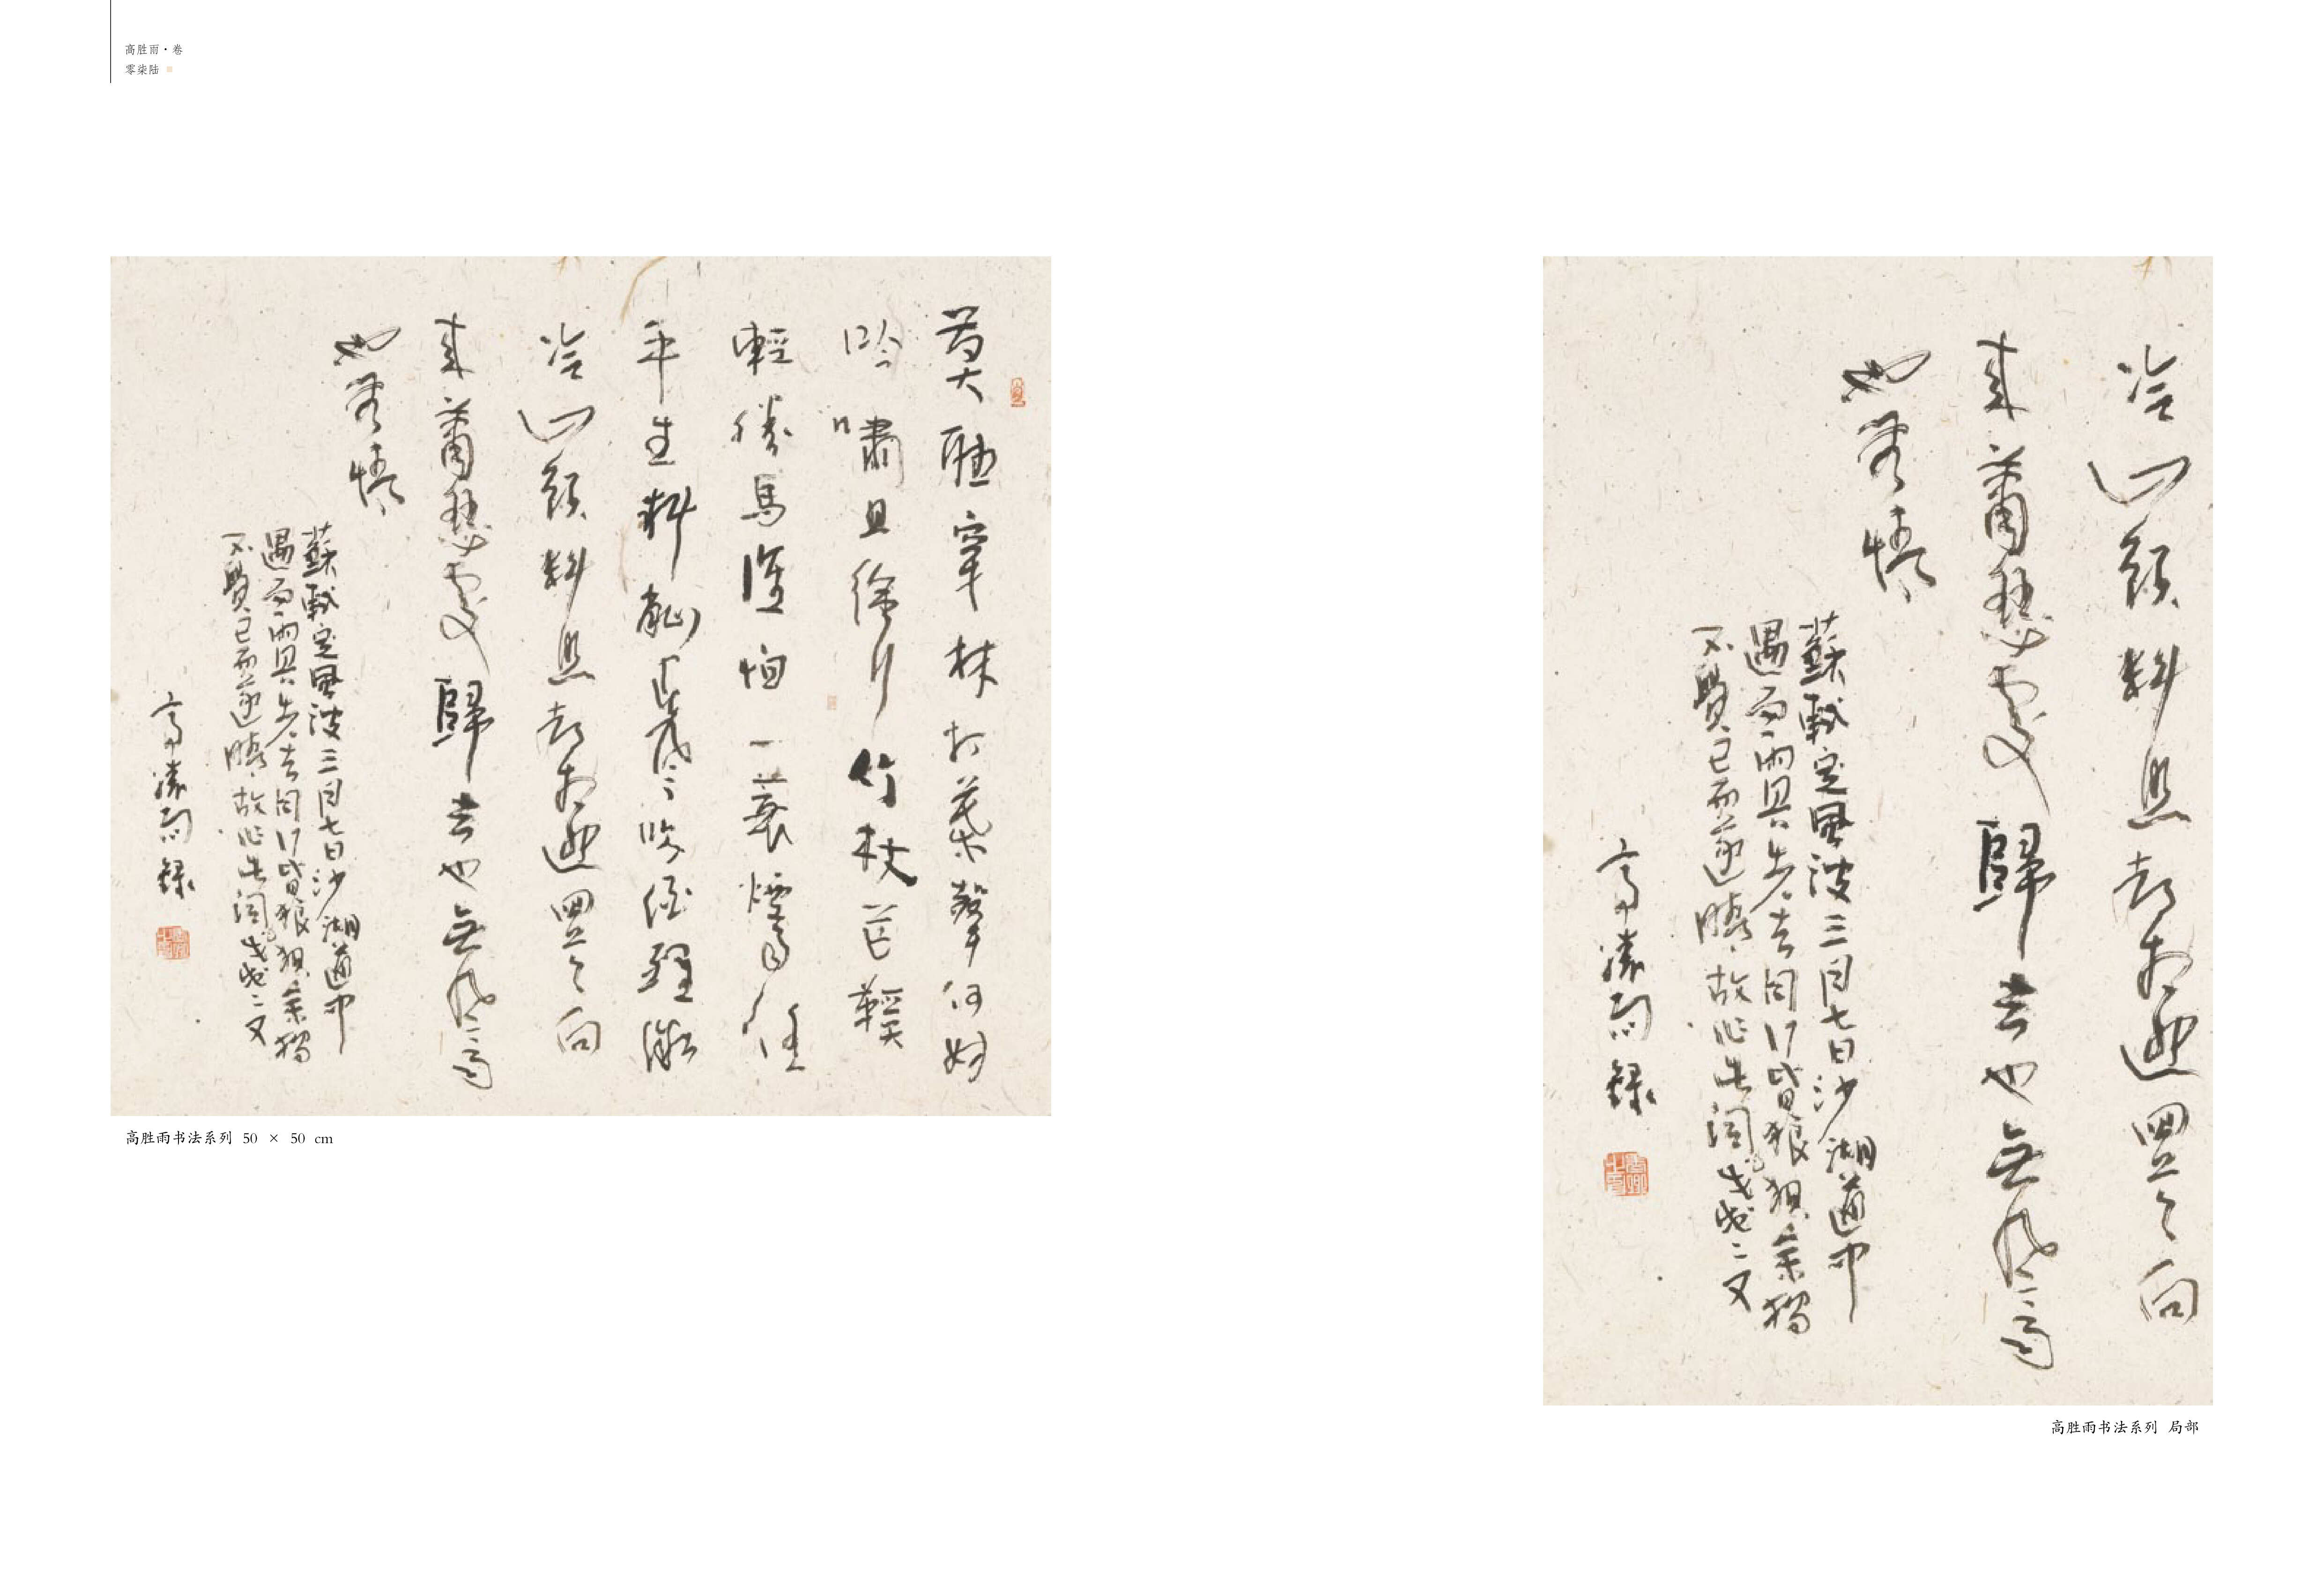 高胜雨·卷
零柒陆
莫聽穿林打葉聲何妨
吟嘯且徐行竹杖芒鞵
輕勝馬誰怕一蓑煙雨任
平生料峭春風吹酒醒微
冷山頭斜照却相迎回首向
來蕭瑟處歸去也無風雨
也無晴
蘇軾定風波三月七日沙湖道中
遇雨雨具先去同行皆狼狽余獨
不覺已而遂晴故作此詞戊戌二又
高勝雨錄
高胜雨书法系列 50 × 50 cm
冷山頭斜照却相迎回首向
來蕭瑟處歸去也無風雨
也無晴
蘇軾定風波三月七日沙湖道中
遇雨雨具先去同行皆狼狽余獨
不覺已而遂晴故作此詞戊戌二又
高勝雨錄
高胜雨书法系列 局部